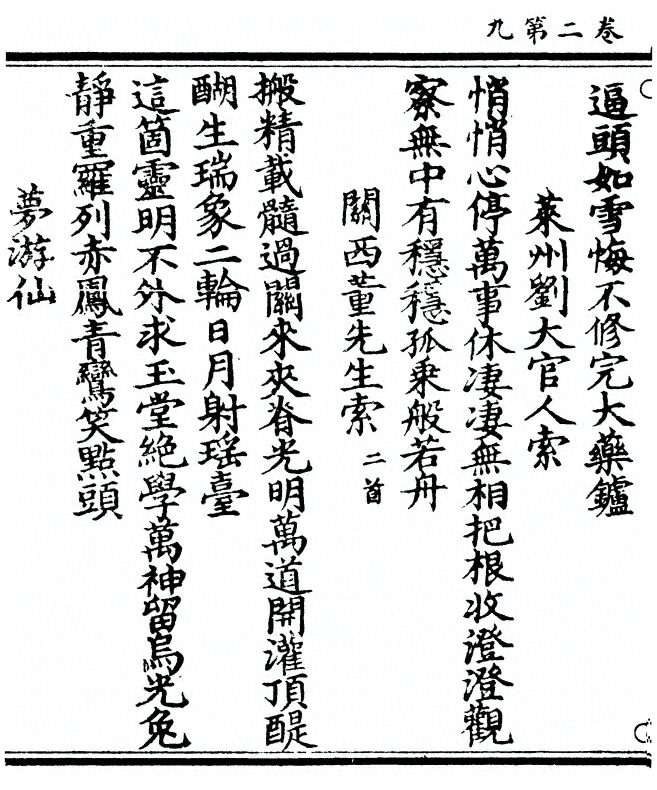 卷二第九
逼頭如雪悔不修完大藥鑪
萊州劉大官人索
悄悄心停萬事休淒淒無相把根收澄澄觀
察無中有穩穩孤乘般若舟
關西董先生索 二首
搬精載髓過關來夾脊光明萬道開灌頂醍
醐生瑞象二輪日月射瑤臺
這箇靈明不外求玉堂絕學萬神留烏光兔
靜重羅列赤鳳青鸞笑點頭
夢游仙